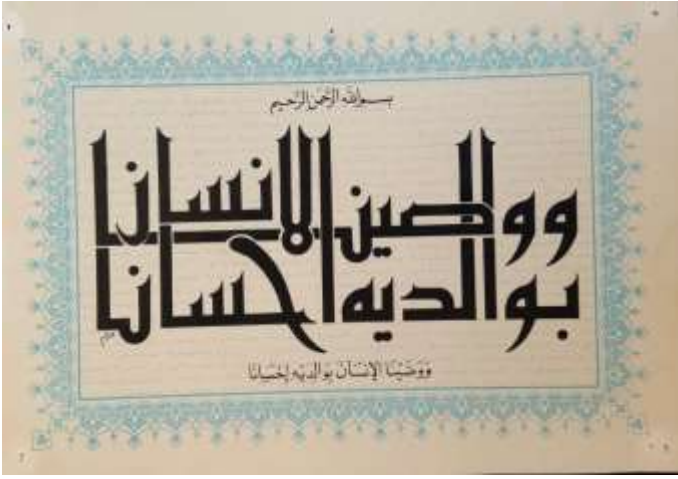 بسم الله الرحمن الرحيم
ووصينا الانسان
بوالديه احسانا
وَوَصَّيْنَا الْإِنْسَانَ بِوَالِدَيْهِ إِحْسَانًا